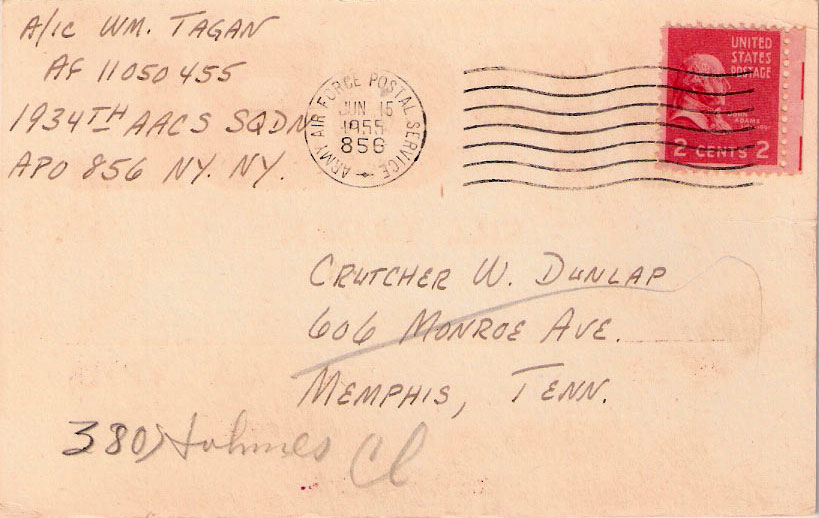 A/1C WM. TAGAN
AF 11050455
1934TH AACS SQDN
APO 856 NY. NY.
ARMY AIR FORCE POSTAL SERVICE
JUN 15
1955
856
UNITED
STATES
POSTAGE
JOHN
ADAMS
2 CENTS 2
CRUTCHER W. DUNLAP
606 MONROE AVE.
MEMPHIS, TENN.
380 Holmes Cl